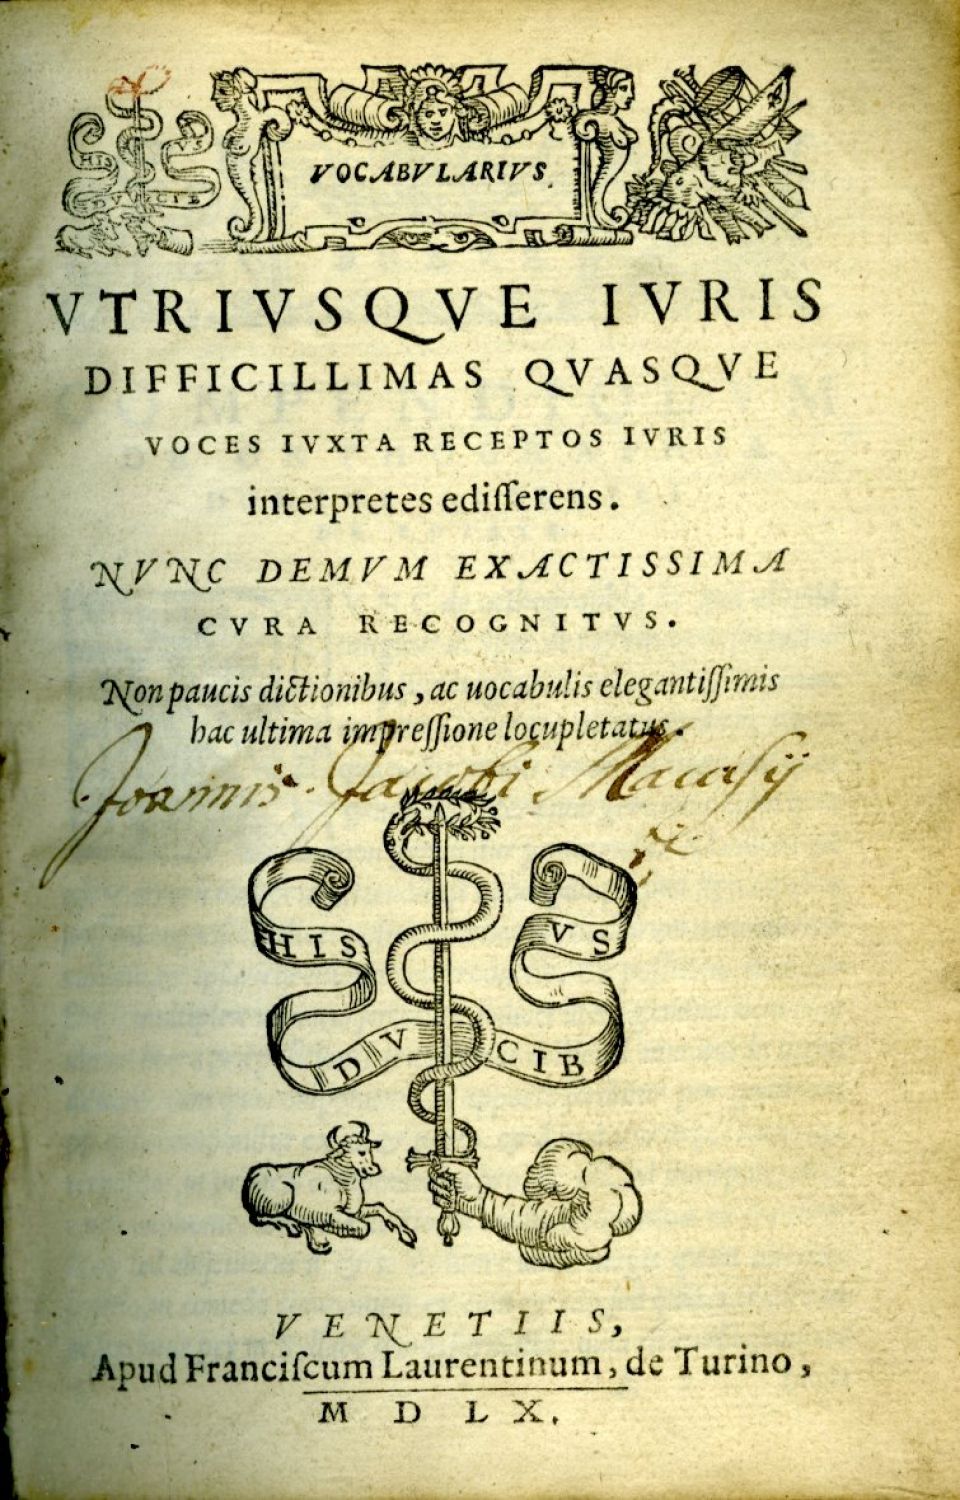 VOCABVLARIVS.
HIS DVCIB VS
VTRIVSQVE IVRIS
DIFFICILLIMAS QVASQVE
VOCES IVXTA RECEPTOS IVRIS
interpretes ediſſerens.
NVNC DEMVM EXACTISSIMA
CVRA RECOGNITVS.
Non paucis dictionibus, ac uocabulis elegantiſſimis
hac ultima impreſſione locupletatus.
Joannis Jacobi
HIS DVCIB VS
VENETIIS,
Apud Franciſcum Laurentinum, de Turino,
M D L X.